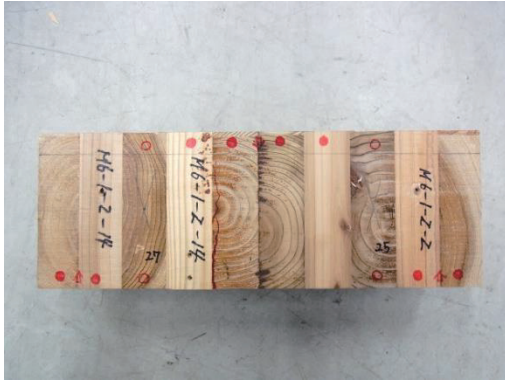 M6-1-2-14
27
M6-1-2-14
25
M6-1-2-2